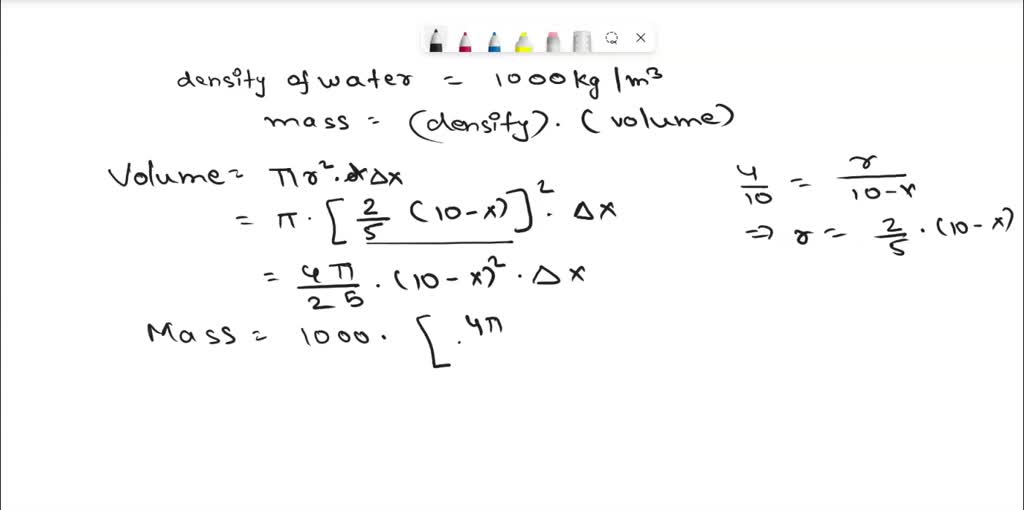 density of water = 1000 kg/m³
mass = (density). (volume)
Volume = πr². Δx
= π. [2/5 (10-x)]². Δx
= 4π/25 . (10-x)². Δx
Mass = 1000. [. 4π
4/10 = r/(10-x)
⇒ r = 2/5 . (10-x)